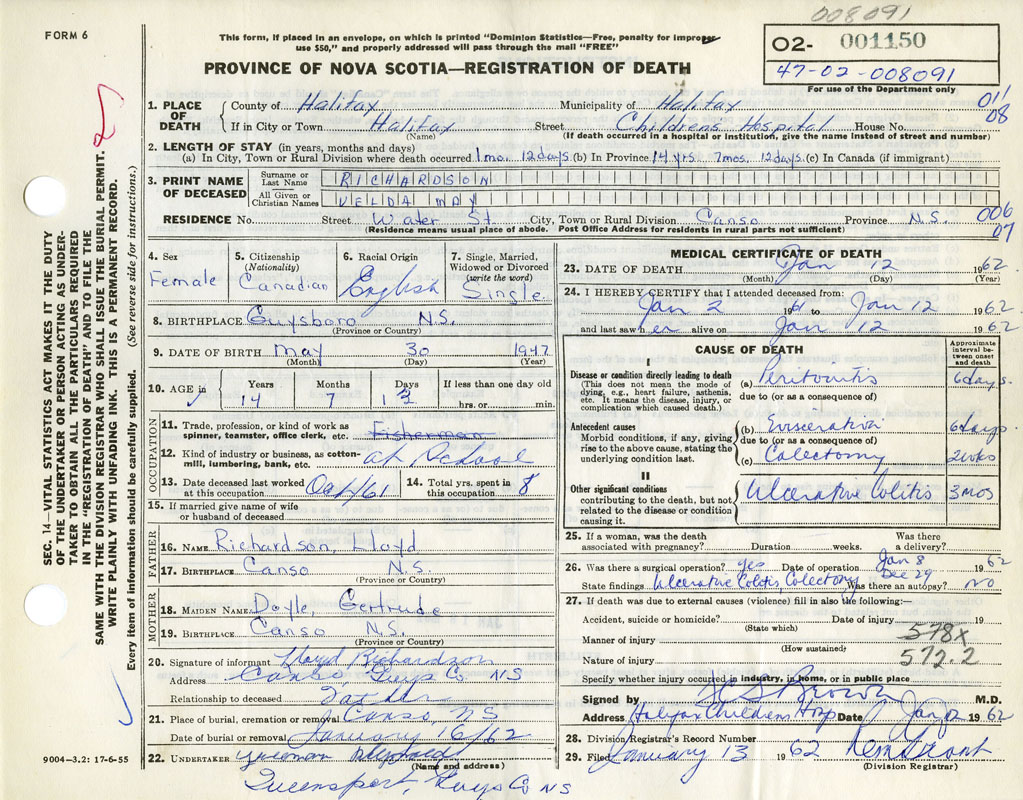 008091
FORM 6
This form, if placed in an envelope, on which is printed "Dominion Statistics—Free, penalty for improper
use $50," and properly addressed will pass through the mail "FREE"
O2- 001150
47-02-008091
For use of the Department only
PROVINCE OF NOVA SCOTIA—REGISTRATION OF DEATH
1. PLACE OF DEATH
County of Halifax Municipality of Halifax 011
If in City or Town Halifax Street Childrens Hospital House No. 08
(Name) (If death occurred in a hospital or institution, give the name instead of street and number)
2. LENGTH OF STAY (in years, months and days)
(a) In City, Town or Rural Division where death occurred 1 mo. 12 days (b) In Province 14 yrs. 7 mos. 12 days (c) In Canada (if immigrant)
3. PRINT NAME OF DECEASED
Surname or Last Name RICHARDSON
All Given or Christian Names VELDA MAY
RESIDENCE No. Street Water St. City, Town or Rural Division Canso Province N.S. 006
(Residence means usual place of abode. Post Office Address for residents in rural parts not sufficient) 07
4. Sex Female
5. Citizenship (Nationality) Canadian
6. Racial Origin English
7. Single, Married, Widowed or Divorced (write the word) Single
8. BIRTHPLACE Guysboro N.S.
(Province or Country)
9. DATE OF BIRTH May 30 1947
(Month) (Day) (Year)
10. AGE in Years Months Days If less than one day old
14 7 12 hrs. or min.
OCCUPATION
11. Trade, profession, or kind of work as spinner, teamster, office clerk, etc. Fisherman
12. Kind of industry or business, as cotton-mill, lumbering, bank, etc. at School
13. Date deceased last worked at this occupation Oct/61
14. Total yrs. spent in this occupation 8
15. If married give name of wife or husband of deceased
FATHER
16. NAME Richardson, Lloyd
17. BIRTHPLACE Canso N.S.
(Province or Country)
MOTHER
18. MAIDEN NAME Doyle, Gertrude
19. BIRTHPLACE Canso N.S.
(Province or Country)
20. Signature of informant Lloyd Richardson
Address Canso, Guys Co NS
Relationship to deceased Father
21. Place of burial, cremation or removal Canso, NS
Date of burial or removal January 16/62
22. UNDERTAKER
(Name and address)
Queensport, Guys Co NS
MEDICAL CERTIFICATE OF DEATH
23. DATE OF DEATH Jan 12 1962
(Month) (Day) (Year)
24. I HEREBY CERTIFY that I attended deceased from:
Jan 2 1961 to Jan 12 1962
and last saw her alive on Jan 12 1962
CAUSE OF DEATH
Approximate interval between onset and death
I
Disease or condition directly leading to death
(This does not mean the mode of dying, e.g., heart failure, asthenia, etc. It means the disease, injury, or complication which caused death.)
(a) Peritonitis 6 days.
due to (or as a consequence of)
Antecedent causes
Morbid conditions, if any, giving rise to the above cause, stating the underlying condition last.
(b) Evisceration 6 days
due to (or as a consequence of)
(c) Colectomy 2 wks
II
Other significant conditions
contributing to the death, but not related to the disease or condition causing it.
Ulcerative Colitis 3 mos
25. If a woman, was the death associated with pregnancy? Duration weeks. Was there a delivery?
26. Was there a surgical operation? yes Date of operation Jan 8 1962
Dec 29
State findings Ulcerative Colitis, Colectomy Was there an autopsy? no
27. If death was due to external causes (violence) fill in also the following:—
Accident, suicide or homicide? Date of injury 19
(State which)
Manner of injury 578x
(How sustained)
Nature of injury 572.2
Specify whether injury occurred in industry, in home, or in public place
Signed by H C S Brown M.D.
Address Halifax Childrens Hosp Date Jan 12 1962
28. Division Registrar's Record Number
29. Filed January 13 1962
(Division Registrar)
SEC. 14—VITAL STATISTICS ACT MAKES IT THE DUTY
OF THE UNDERTAKER OR PERSON ACTING AS UNDER-
TAKER TO OBTAIN ALL THE PARTICULARS REQUIRED
IN THE "REGISTRATION OF DEATH" AND TO FILE THE
SAME WITH THE DIVISION REGISTRAR WHO SHALL ISSUE THE BURIAL PERMIT.
WRITE PLAINLY WITH UNFADING INK. THIS IS A PERMANENT RECORD.
Every item of information should be carefully supplied. (See reverse side for instructions.)
9004-3.2: 17-6-55